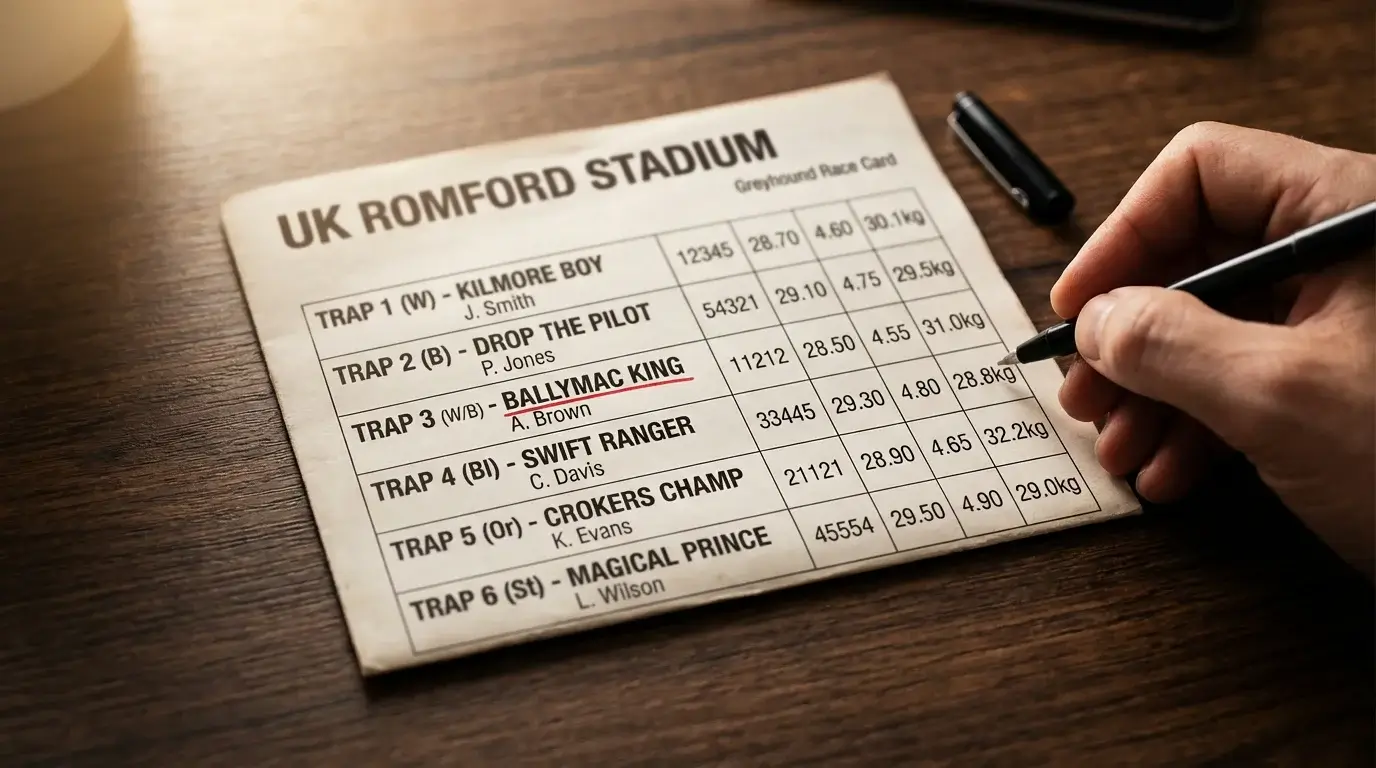 UK ROMFORD STADIUM
Greyhound Race Card
TRAP 1 (W) - KILMORE BOY 12345 28.70 4.60 30.1kg
J. Smith
TRAP 2 (B) - DROP THE PILOT 54321 29.10 4.75 29.5kg
P. Jones
TRAP 3 (W/B) - BALLYMAC KING 11212 28.50 4.55 31.0kg
A. Brown
TRAP 4 (Bl) - SWIFT RANGER 33445 29.30 4.80 28.8kg
C. Davis
TRAP 5 (Or) - CROKERS CHAMP 21121 28.90 4.65 32.2kg
K. Evans
TRAP 6 (St) - MAGICAL PRINCE 45554 29.50 4.90 29.0kg
L. Wilson